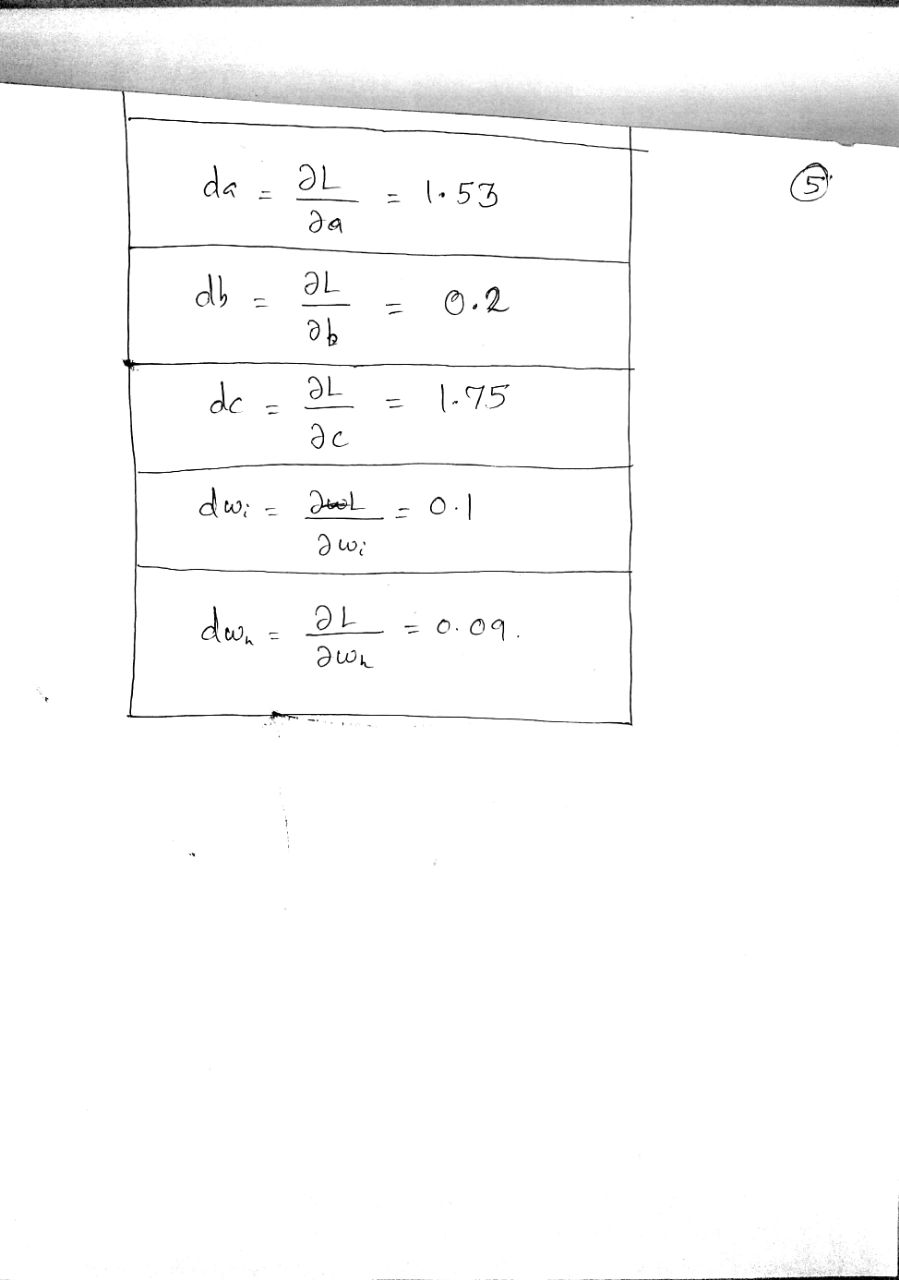 ⑤
da = ∂L/∂a = 1.53
db = ∂L/∂b = 0.2
dc = ∂L/∂c = 1.75
dwᵢ = ∂L/∂wᵢ = 0.1
dwₕ = ∂L/∂wₕ = 0.09.